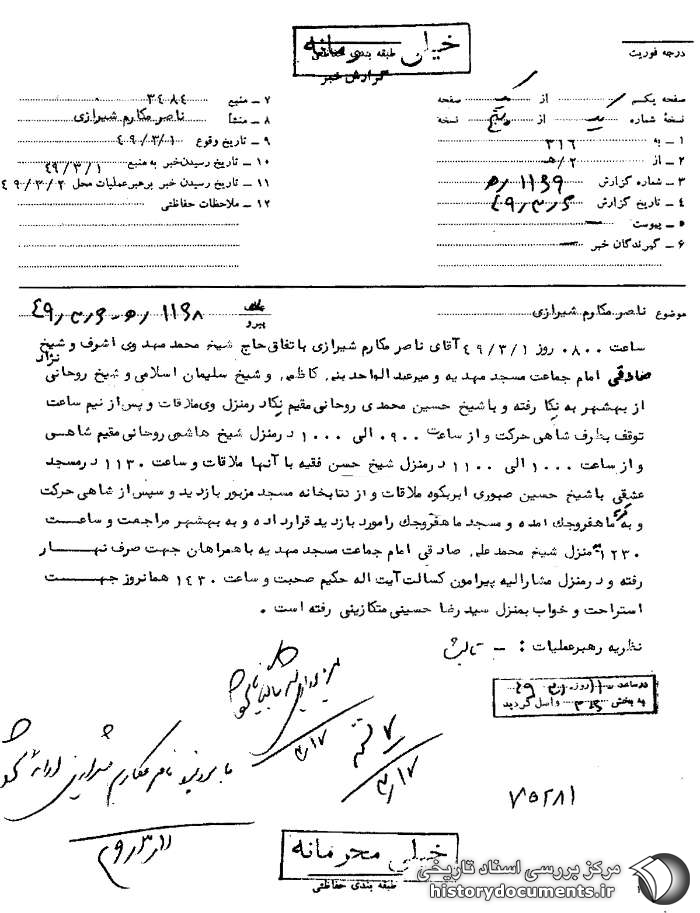 خیلی محرمانه
طبقه بندی حفاظتی
گزارش خبر
درجه فوریت
صفحه یکم از یک صفحه
نسخهٔ شماره یک از پنج نسخه
۱ ـ به ۳۱۶
۲ ـ از ۲/هـ
۳ ـ شماره گزارش ۱۱۳۹/ه
۴ ـ تاریخ گزارش ۴۹/۳/۶
۵ ـ پیوست
۶ ـ گیرندگان خبر
۷ ـ منبع ۳۴۸۴
۸ ـ منشأ ناصر مکارم شیرازی
۹ ـ تاریخ وقوع ۴۹/۳/۱
۱۰ ـ تاریخ رسیدن خبر به منبع ۴۹/۳/۱
۱۱ ـ تاریخ رسیدن خبر برهبر عملیات محل ۴۹/۳/۲
۱۲ ـ ملاحظات حفاظتی
موضوع ناصر مکارم شیرازی
پیرو ۱۱۳۸/ه-۴۹/۳/۶
ساعت ۰۸۰۰ روز ۴۹/۳/۱ آقای ناصر مکارم شیرازی با تفاق حاج شیخ محمد مهدوی اشرف و شیخ
صادقی نژاد امام جماعت مسجد مهدیه و میرعبدالواحد بنی کاظمی و شیخ سلیمان اسلامی و شیخ روحانی
از بهشهر به نکا رفته و با شیخ حسین محمدی روحانی مقیم نکا در منزل وی ملاقات و پس از نیم ساعت
توقف بطرف شاهی حرکت و از ساعت ۰۹۰۰ الی ۱۰۰۰ در منزل شیخ هاشمی روحانی مقیم شاهی
و از ساعت ۱۰۰۰ الی ۱۱۰۰ در منزل شیخ حسن فقیه با آنها ملاقات و ساعت ۱۱۳۰ در مسجد
عشقی با شیخ حسین صبوری ابربکوه ملاقات و از کتابخانه مسجد مزبور بازدید و سپس از شاهی حرکت
و به ماهفروجك آمده و مسجد ماهفروجك را مورد بازدید قرار داده و به بهشهر مراجعت و ساعت
۱۲۳۰ به منزل شیخ محمد علی صادقی امام جماعت مسجد مهدیه با همراهان جهت صرف نهار
رفته و در منزل مشارالیه پیرامون کسالت آیت اله حکیم صحبت و ساعت ۱۴۳۰ همانروز جهت
استراحت و خواب بمنزل سید رضا حسینی متکازینی رفته است .
نظریه رهبر عملیات : -
در ساعت ۱۱ روز ۴۹
به بخش ۳۱۶ واصل گردید
۳/۱۷
۳/۱۷
۷۵۲۸۱
خیلی محرمانه
طبقه بندی حفاظتی
مرکز بررسی اسناد تاریخی
historydocuments.ir